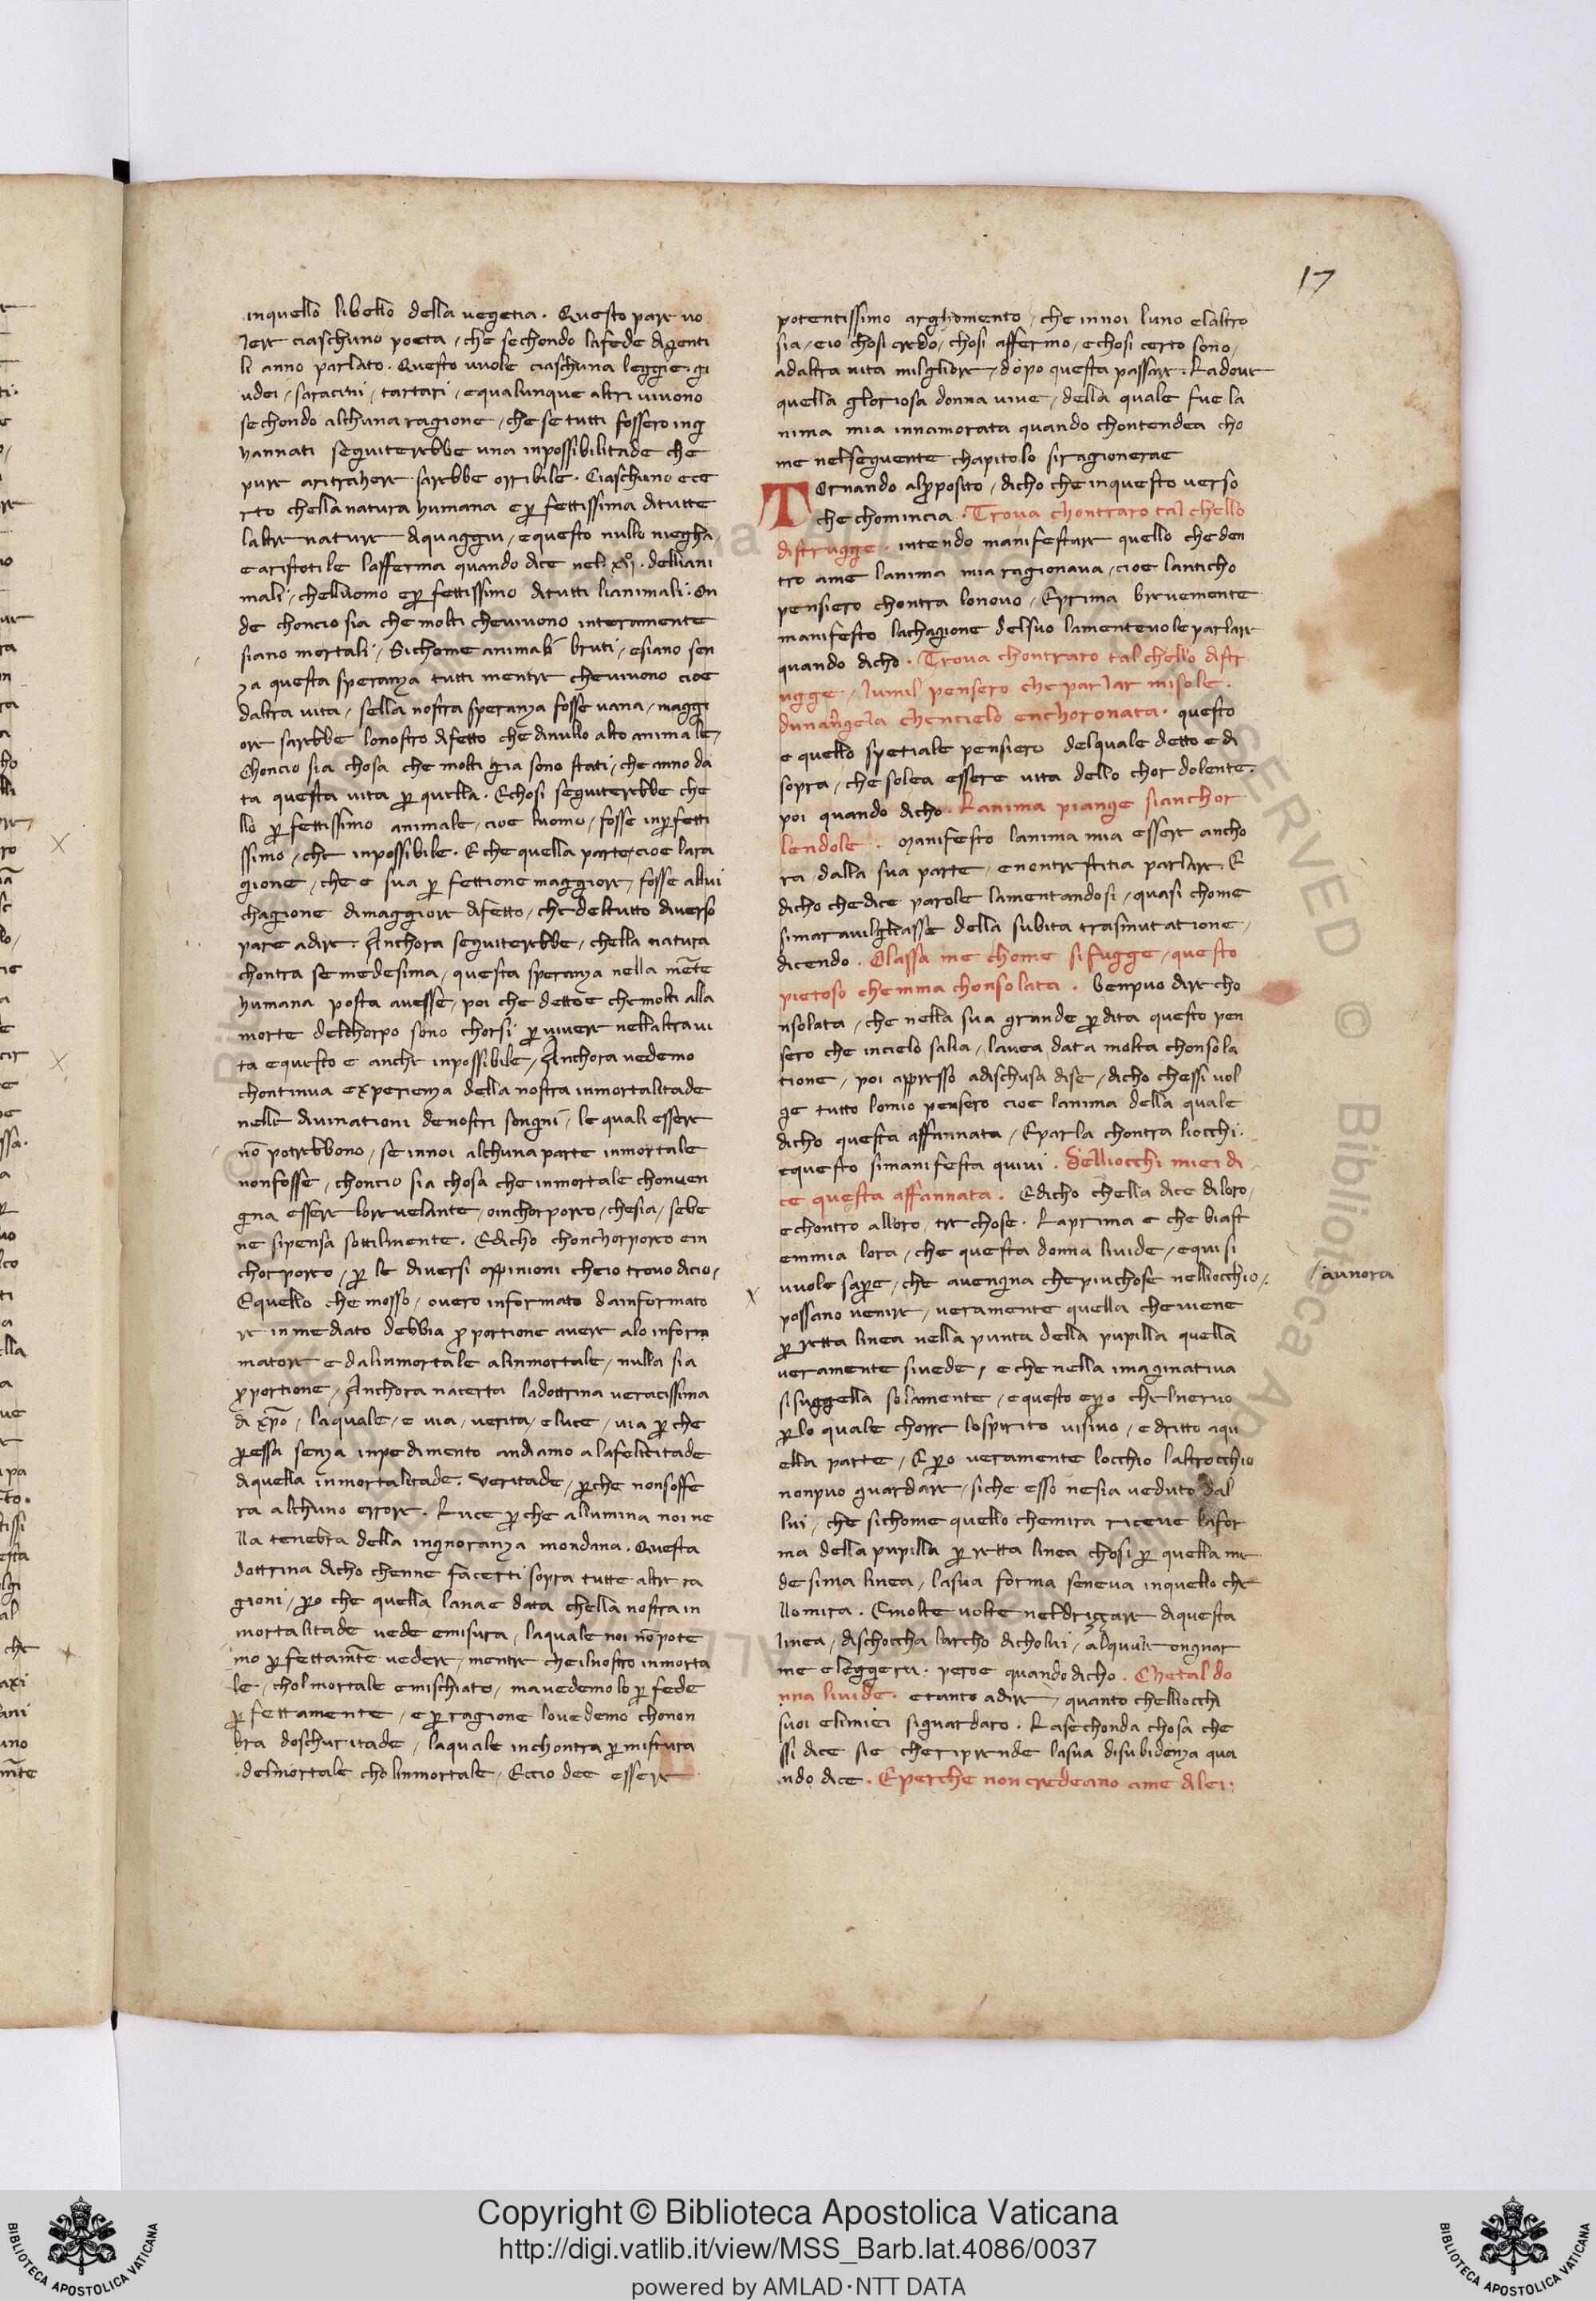 17
inquello libello della vegetia . Questo pare vo
lere ciaschuno poeta / che sechondo lafede digenti
li anno parlato . Questo vuole ciaschuna leggie . gi
udei / saracini / tartari / equalunque altri vivono
sechondo alchuna ragione / che se tutti fossero ing
hannati seguiterebbe una inpossibilitade che
pure aritrahere sarebbe orribile . Ciaschuno ece
rto chella natura humana e p fettissima ditutte
laltre nature diquaggiu / equesto nullo niegha /
earistotile lafferma quando dice nel . xij . delliani
mali / chelluomo e p fettissimo ditutti lianimali . On
de choncio sia che molti chevivono interamente
siano mortali / Sichome animali bruti / esiano sen
za questa speranza tutti mentre chevivono cioe
daltra vita / sella nostra speranza fosse vana / maggi
ore sarebbe lonostro difetto che dinullo alto animale /
Choncio sia chosa che molti gia sono stati / che anno da
ta questa vita p quella . Echosi seguiterebbe che
llo p fettissimo animale / cioe luomo / fosse inp fetti
ssimo / che inpossibile . E che quella parte / cioe lara
gione / che e sua p fettione maggiore / fosse allui
chagione dimaggiore difetto / che deltutto diverso
pare adire . Anchora seguiterebbe / chella natura
chontra semedesima / questa speranza nella mēte
humana posta avesse / poi che dettoe chemolti alla
morte delchorpo sono chorsi p vivere nellaltra vi
ta equesto e anche inpossibile / Anchora vedemo
chontinua experienza della nostra inmortalitade
nelle divinationi denostri songni / le quali essere
nō potrebbono / se innoi alchuna parte inmortale
nonfosse / choncio sia chosa che inmortale chonven
gna essere lorrvelante / oinchorporeo / chesia / sebe
ne sipensa sottilmente . Edicho chonchorporeo ein
chorporeo / p le diversi oppinioni cheio trovo dicio /
Equello che mosso / overo informato dainformato
re inmediato debbia p portione avere alo inform
matore e dalinmortale alinmortale / nulla sia
p portione / Anchora nacerta ladottrina veracissima
di xp̄o / laquale / e via / verita / eluce / via p che
p essa senza inpedimento andiamo alafelicitade
diquella inmortalitade . Veritade / p che nonsoffe
ra alchuno errore . Luce p che allumina noi ne
lla tenebra della ingnoranza mondana . Questa
dottrina dicho chenne facerti sopra tutte altre ra
gioni / p o che quella lanae data chella nostra in
mortalitade vede emisura / laquale noi nō pote
mo p fettamēte vedere / mentre cheilnostro inmorta
le / cholmortale emischiato / mavedemolo p fede
p fettamente / e p ragione lovedemo chonon
bra doschuritade / laquale inchontra p mistura
delmortale cholinmortale / Eccio dee essere
potentissimo arghomento / che innoi luno elaltro
sia / eio chosi credo / chosi affermo / echosi certo sono /
adaltra vita milgliore / dopo questa passare . Ladove
quella gloriosa donna vive / della quale fue la
nima mia innamorata quando chontendea cho
me nelseguente chapitolo siragionerae
Tornando alp posito / dicho che inquesto verso
che chomincia . Trova chontraro tal chello
distrugge . intendo manifestare quello cheden
tro ame lanima mia ragionava / cioe lanticho
pensiero chontra lonovo / Eprima brevemente
manifesto lachagione delsuo lamentevole parlare
quando dicho . Trova chontraro tal chello distr
ugge / lumil pensero che parlar misole .
dunangela chencielo enchoronata . questo
e quello spetiale pensiero delquale detto e di
sopra / che solea essere vita dello chor dolente .
poi quando dicho . Lanima piange sianchor
lendole . Manifesto lanima mia essere ancho
ra / dalla sua parte / econtrestitia parlare . E
dicho chedice parole lamentandosi / quasi chome
simaravilgliasse della subita trasmutatione /
dicendo . Olassa me chome sifugge / questo
pietoso chemma chonsolata . benpuo dire cho
nsolata / che nella sua grande p dita questo pen
sero che incielo salia / lavea data molta chonsola
tione / poi appresso adischusa dise / dicho chessi vol
ge tutto lomio pensero cioe lanima della quale
dicho questa affannata / Eparla chontra liocchi .
equesto simanifesta quivi . Delliocchi miei di
ce questa affannata . Edicho chella dice diloro /
echontro alloro / tre chose . Laprima e che biast
emmia lora / che questa donna livide / equi si
vuole sap e / che avengna chepiuchose nelliocchio /
/ aunora
possano venire / veramente quella cheviene
p retta linea nella punta della pupilla quella
veramente sivede / e che nella imaginativa
sisuggella solamente / equesto e p o chelnervo
p lo quale chorre lospirito visivo / edritto aqu
ella parte / E p o veramente locchio laltrocchio
nonpuo guardare / siche esso nesia veduto dal
lui / che sichome quello chemira riceve lafor
ma della pupilla p retta linea chosi p quella me
desima linea / lasua forma seneva inquello che
llomira . Emolte volte neldrizzare diquesta
linea / dischoccha larcho dicholui / alquale ongnar
me eleggera . peroe quando dicho . Chetal do
nna livide . etanto adire / quanto chelliocchi
suoi elimiei siguardaro . Lasechonda chosa che
ssi dice sie cheriprende lasua disubidenza qua
ndo dice . Eperche non credeano ame dilei .
Copyright © Biblioteca Apostolica Vaticana
http://digi.vatlib.it/view/MSS_Barb.lat.4086/0037
powered by AMLAD·NTT DATA
BIBLIOTECA APOSTOLICA VATICANA
BIBLIOTECA APOSTOLICA VATICANA